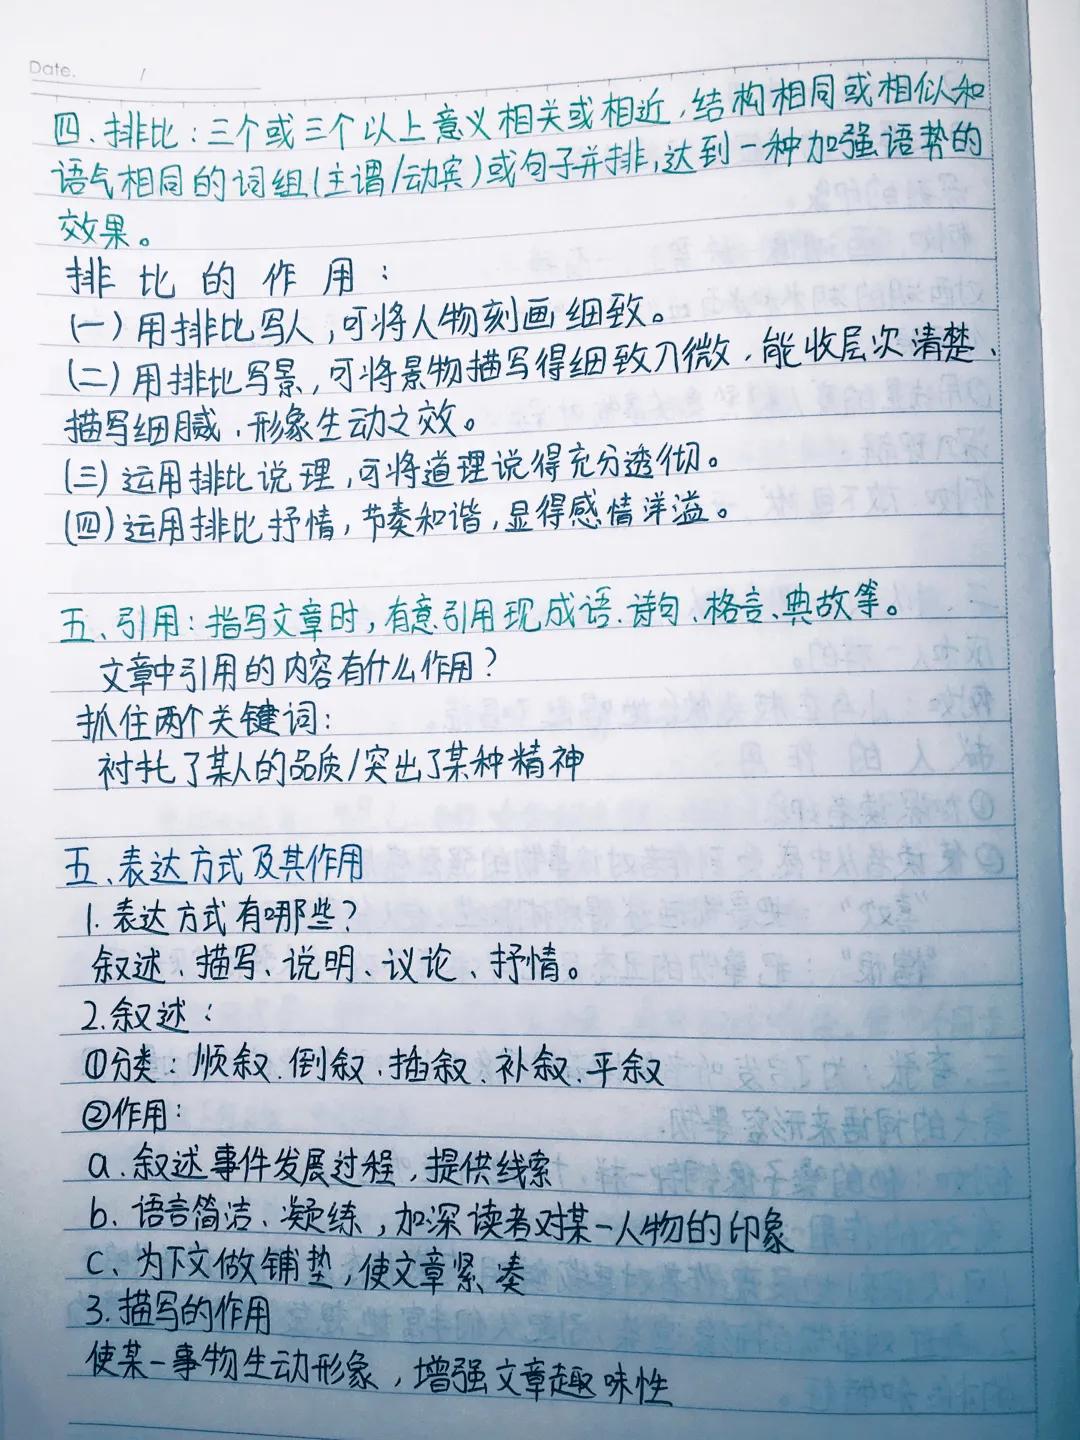 Date. /
四、排比：三个或三个以上意义相关或相近，结构相同或相似和
语气相同的词组(主谓/动宾)或句子并排，达到一种加强语势的
效果。
排比的作用：
(一)用排比写人，可将人物刻画细致。
(二)用排比写景，可将景物描写得细致入微，能收层次清楚、
描写细腻、形象生动之效。
(三)运用排比说理，可将道理说得充分透彻。
(四)运用排比抒情，节奏和谐，显得感情洋溢。
五、引用：指写文章时，有意引用现成语、诗句、格言、典故等。
文章中引用的内容有什么作用？
抓住两个关键词：
衬托了某人的品质/突出了某种精神
五、表达方式及其作用
1.表达方式有哪些？
叙述、描写、说明、议论、抒情。
2.叙述：
①分类：顺叙、倒叙、插叙、补叙、平叙
②作用：
a.叙述事件发展过程，提供线索
b.语言简洁、凝练，加深读者对某一人物的印象
c、为下文做铺垫，使文章紧凑
3.描写的作用
使某一事物生动形象，增强文章趣味性